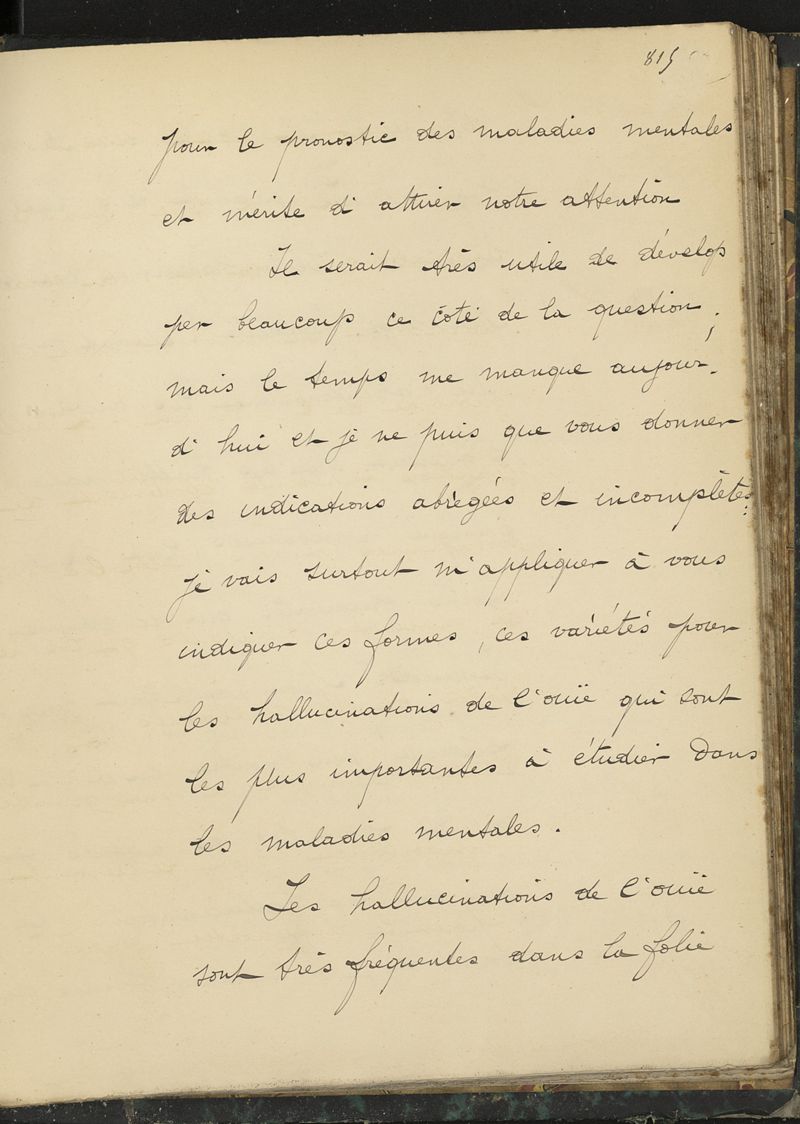 815
pour le pronostic des maladies mentales
et mérite d'attirer notre attention
Il serait très utile de dévelop
per beaucoup ce coté de la question ;
mais le temps me manque aujour-
d'hui et je ne puis que vous donner
des indications abrégées et incomplètes :
je vais surtout m'appliquer à vous
indiquer ces formes, ces variétés pour
les hallucinations de l'ouïe qui sont
les plus importantes à étudier dans
les maladies mentales.
Les hallucinations de l'ouïe
sont très fréquentes dans la folie